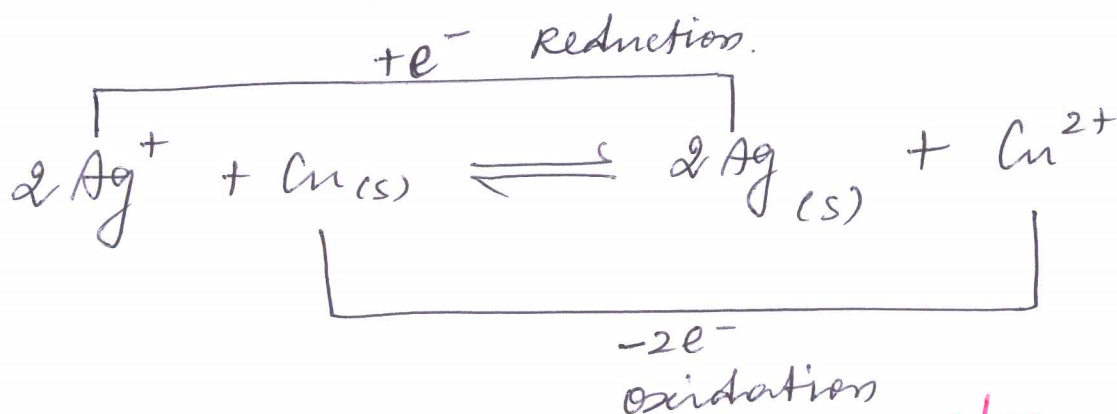 +e⁻ Reduction.
2Ag⁺ + Cu(s) ⇌ 2Ag(s) + Cu²⁺
-2e⁻
oxidation